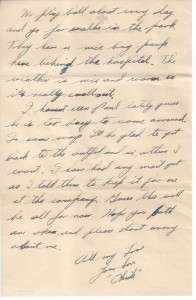 We play ball about every day
and go for walks in the park.
They have a nice big park
here behind the hospital. The
weather is nice and warm so
it's really swell out.
I haven't seen Paul lately guess
he is too busy to come around.
In some ways I'll be glad to get
back to the outfit and in others I
won't. I haven't had any mail yet
as I told them to keep it for me
at the company. Guess this will
be all for now. Hope you both
are okay and please don't worry
about me.
All my love
Your Son
"Chick"